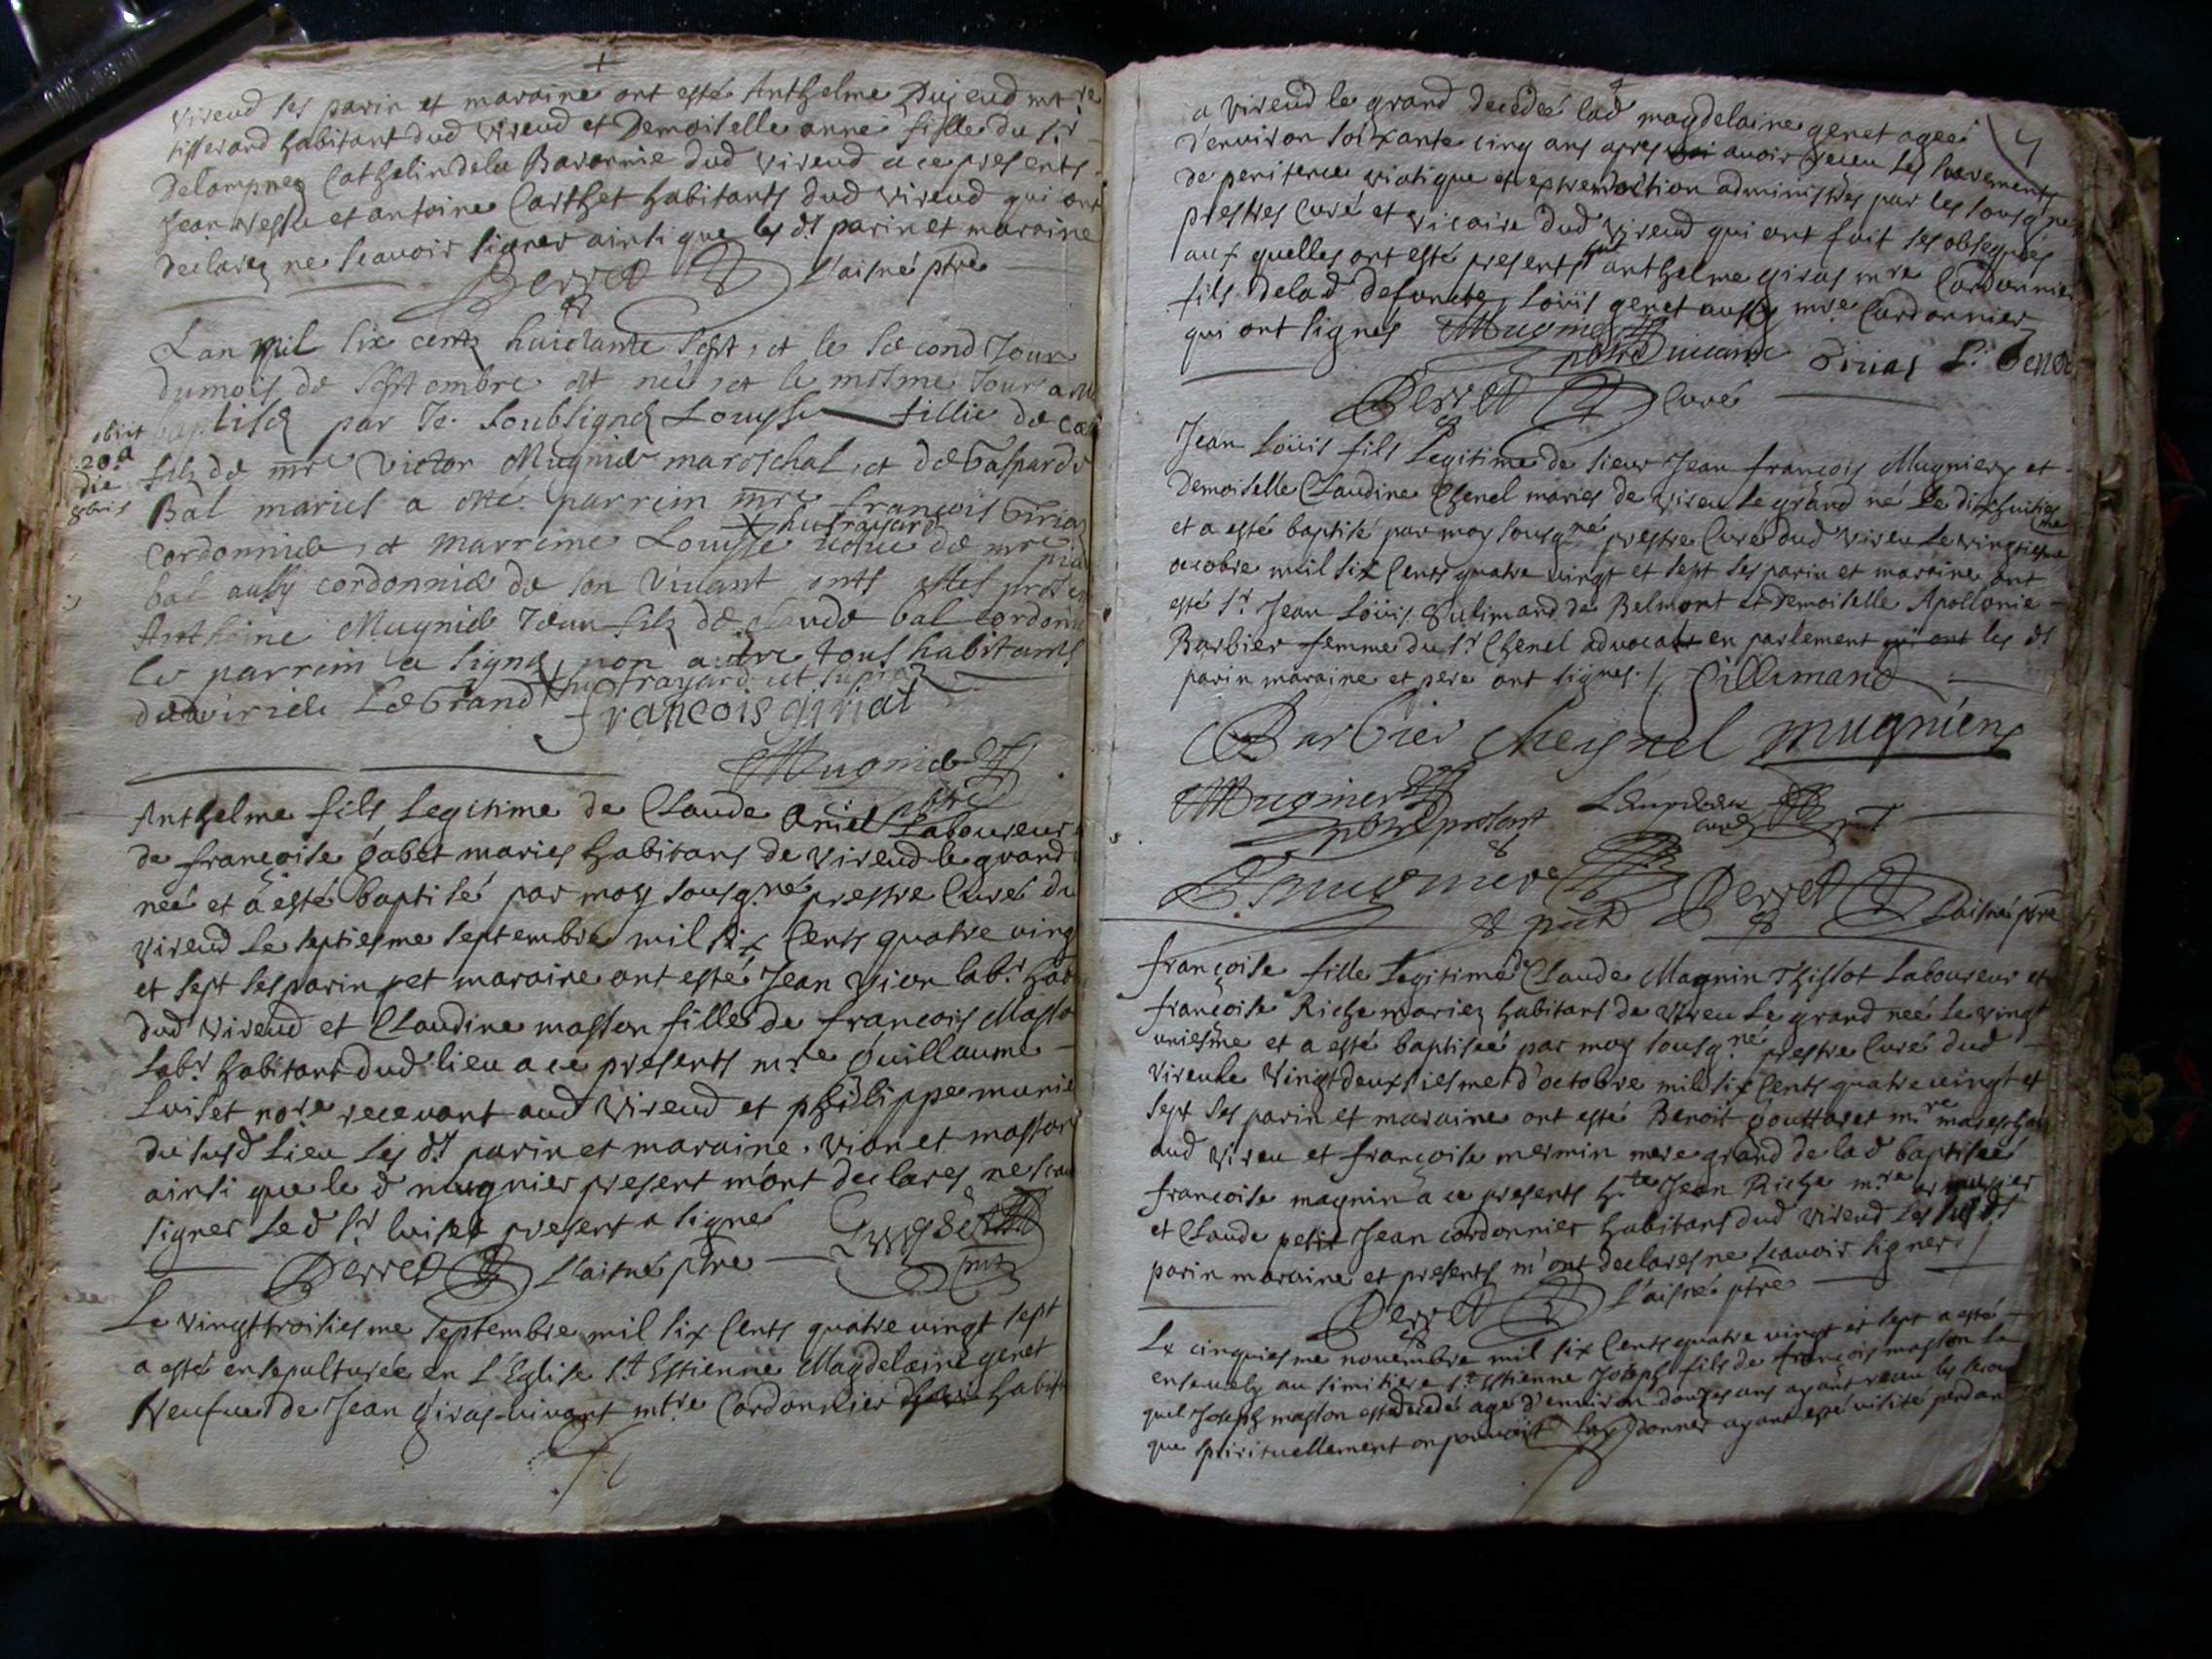 vireud ses parin et maraine ont esté Anthelme Dujeud mtre
tisserand habitant dud vireud et Demoiselle anne fille du Sr
Delompnes Cathelin dela Baronnie dud vireud a ce presents
Jean et antoine Carthet habitants dud vireud qui ont
declarez ne scavoir signer ainsi que les dt parin et maraine
Perret L'aisné ptre
Lan mil six cents huictante sept, et le second Jour
du mois de septembre est née, et le mesme Jour a esté
baptisée par Je soubsigné Louyse fillie de
obiit
20a
die
8bris
filz de mre Victor Mugnier mareschal, et de Gasparde
Bal mariés a esté parrein mre francois Girias
hustrayard
cordonnier, et marreine Louyse vefve de mre
bal aussy cordonnier de son Vivant ents estes
Anthoine Mugnier Jean filz de claude bal cordonnier
le parrein a signé, non autre tous habitants
hustrayard ut supra
de virieu Le Grand francois girias
Mugnier
ptre
Anthelme fils Legitime de Claude Laboureur
de françoise gabet mariés habitans de vireud le grand
neé et a esté baptisé par moy sousgné prestre Curé du
vireud Le septiesme septembre mil six Cents quatre ving
et sept ses parin et maraine ont esté Jean vion labr hab
dud vireud et Claudine masson fille de francois Masson
labr habitant dud lieu a ce presents mre Guillaume
Luiset nore recevant aud vireud et philippe munier
du susd Lieu Les dt parin et maraine vion et masson
ainsi que le d mugnier present m'ont declares ne scav
signer Le d Sr luiset present a signé
Perret L'aisné ptre
Le vingttroisiesme septembre mil six Cents quatre vingt sept
a esté ensepulturée en L'Eglise St Estienne Magdelaine genet
Veufue de Jean giras vivant mtre Cordonnier habit
4
a vireud le grand decedeé lad magdelaine genet ageé
d'environ soixante cinq ans apres avoir receu les sacrements
de penitence viatique et extremoction administrés par les sousgnés
prestres Curé et vicaire dud vireud qui ont fait ses obseques
aux quelles ont esté presents anthelme giras mre Cordonnier
fils delad defuncte, Loüis genet aussy mre Cordonnier
qui ont signés Mugnier
ptre vicaire Girias L. Genet
Perret Curé
Jean Loüis fils Legitime de sieur Jean françois Mugniers et
Demoiselle Claudine Chenel mariés de vireu le grand né Le dixhuitiesme
et a esté baptisé par moy sousgné prestre Curé dud vireu Le vingtiesme
octobre mil six Cents quatre vingt et sept ses parin et maraine ont
esté Sr Jean Loüis Sulimand de Belmont et Demoiselle Apollonie
Barbier femme du Sr Chenel advocat en parlement qui ont les dt
parin maraine et pere ont signés. Sillimand
Barbier cheisnel mugniers
Mugnier
ptre present
Perret L'aisné ptre
françoise fille Legitime Claude Magnin Thissot Laboureur et
françoise Riche mariez habitans de vireu Le grand neé le vingt
uniesme et a esté baptiseé par moy sousgné prestre Curé dud
vireu le vingtdeuxiesme d'octobre mil six Cents quatre vingt et
sept ses parin et maraine ont esté Benoit gouttaret mre mareschal
aud vireu et françoise mermin mere grand de lad baptiseé
francoise magnin a ce presents hte Jean Riche mre
et Claude petit Jean cordonnier habitans dud vireud Les susdt
parin maraine et presents m'ont declares ne scavoir signer
Perret L'aisné ptre
Le cinquiesme novembre mil six Cents quatre vingt et sept a esté
ensevely au simitiere St Estienne Joseph fils de françois masson le
quel Joseph masson est decedé agé d'environ douze ans ayant receu les secours
que spirituellement on pouvoit luy donner ayant esté visité pendan